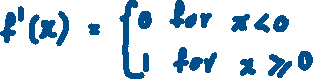 f'(x) = { 0 for x < 0
1 for x ⩾ 0